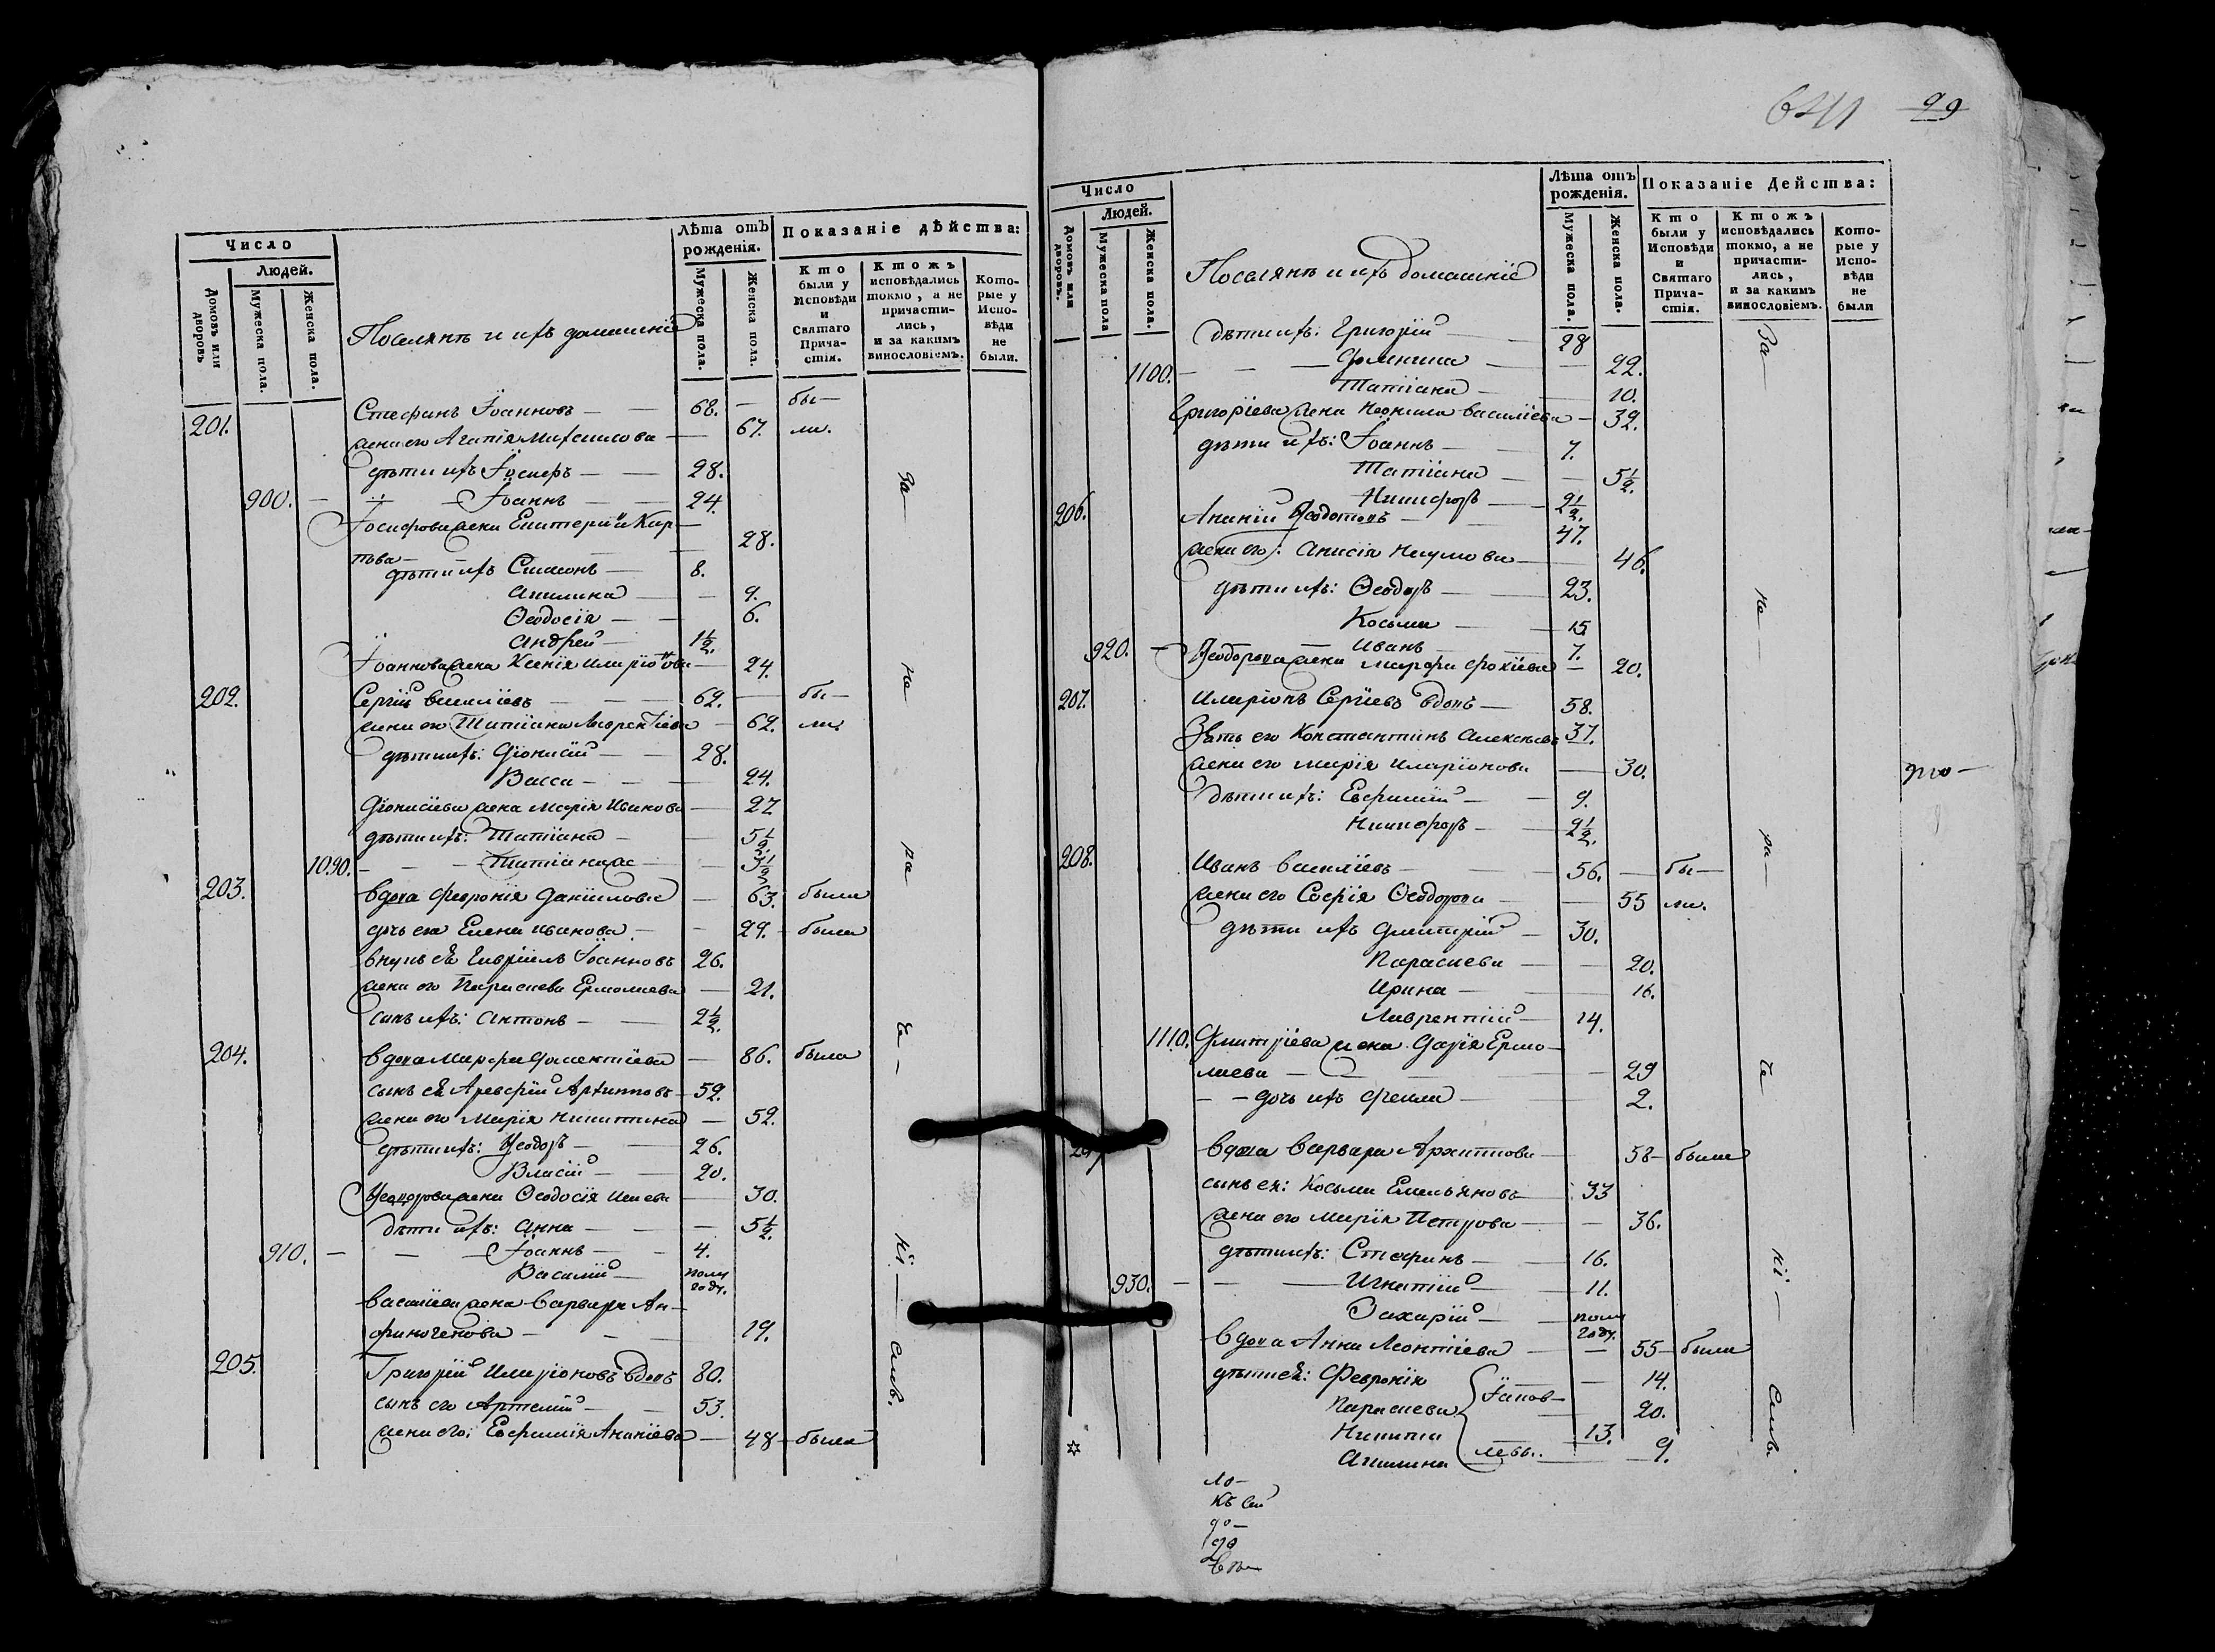 Число
Людей.
Домовъ или дворовъ
Мужеска пола.
Женска пола.
Поселянъ и ихъ домашніе
Лѣта отъ рожденія.
Мужеска пола.
Женска пола.
Показаніе дѣйства:
Кто были у Исповѣди и Святаго Прича-стія.
Ктожъ исповѣдались токмо, а не причасти-лись, и за какимъ винословіемъ.
Кото-рые у Испо-вѣди не были.
201. Стефанъ Іоанновъ — 68. — бы—
жена его Агапія — 67. ли.
дѣти ихъ Іосифъ — 28.
900. — Іоаннъ — 24.
Іосифова жена Екатерина Кар—
пова — 28.
дѣти ихъ Симеонъ — 8.
Акилина — 9.
Ѳеодосія — 6.
Андрей — 1½.
Іоаннова жена Ксенія Иларіонова — 24.
202. Сергій Василіевъ — 62. — бы—
жена его Татіана Лаврентіева — 62. ли.
дѣти ихъ: Діонисій — 28.
Васса — 24.
Діонисіева жена Марія Иванова — 27
дѣти ихъ: Татіана — 5½
1090. — Татіана — 3½
203. вдова Февронія Даніилова — 63. была
дочь ея Елена Иванова — 29. была
внукъ ея Гавріилъ Іоанновъ 26.
жена его Параскева Ермолаева — 21.
сынъ ихъ: Антонъ — 2½.
204. вдова Марфа — 86. была
сынъ ея Архипповъ — 59.
жена его Марія Никитина — 52.
дѣти ихъ: Ѳеодоръ — 26.
Власій — 20.
Ѳеодорова жена Ѳеодосія — 30.
дѣти ихъ: Анна — 5½.
910. — Іоаннъ — 4.
Василій — полу году.
Василіева жена Варвара Ан—
финогенова — 19.
205. Григорій Иларіоновъ вдовъ 80.
сынъ его Артемій — 53.
жена его: Евфимія Ананіева — 48 — была
За — не — ра — че — нії — симъ.
641 99
Число
Людей.
Домовъ или дворовъ.
Мужеска пола
Женска пола.
Поселянъ и ихъ домашніе
Лѣта отъ рожденія.
Мужеска пола.
Женска пола.
Показаніе Действа:
Кто были у Исповѣди и Святаго Прича-стія.
Ктожъ исповѣдались токмо, а не причасти-лись, и за какимъ винословіемъ.
Кото-рые у Испо-вѣди не были
дѣти ихъ: Григорій — 28
Домника — 22.
1100. — Татіана — 10.
Григоріева жена Неонила Василіева — 32.
дѣти ихъ: Іоаннъ — 7.
Татіана — 5½.
Никифоръ — 2½.
206. Ананій Ѳеодотовъ — 47.
жена его: Анисія Наумова — 46.
дѣти ихъ: Ѳеодоръ — 23.
Косьма — 15
920. — Иванъ — 7.
Ѳеодорова жена Марфа Фокіева — 20.
207. Иларіонъ Сергіевъ вдовъ — 58.
Зять его Константинъ Алексѣевъ 37.
жена его Марія Иларіонова — 30.
дѣти ихъ: Евфимій — 9.
Никифоръ — 2½.
208. Иванъ Василіевъ — 56. — бы—
жена его Софія Ѳеодорова — 55 ли.
дѣти ихъ Димитрій — 30.
Параскева — 20.
Ирина — 16.
Лаврентій — 14.
1110. Димитріева жена Дарія Ермо—
лаева — 29
— дочь ихъ Фекла — 2.
вдова Варвара Архиппова — 58 — была
сынъ ея: Косьма Емельяновъ — 33
жена его Марія Петрова — 36.
дѣти ихъ: Стефанъ — 16.
930. — Игнатій — 11.
Захарій — полу году.
вдова Анна Леонтіева — 55 — была
дѣти ея: Февронія — 14.
Параскева — 20.
Никита — 13.
Акилина — 9.
За — не — ра — че — нії — симъ